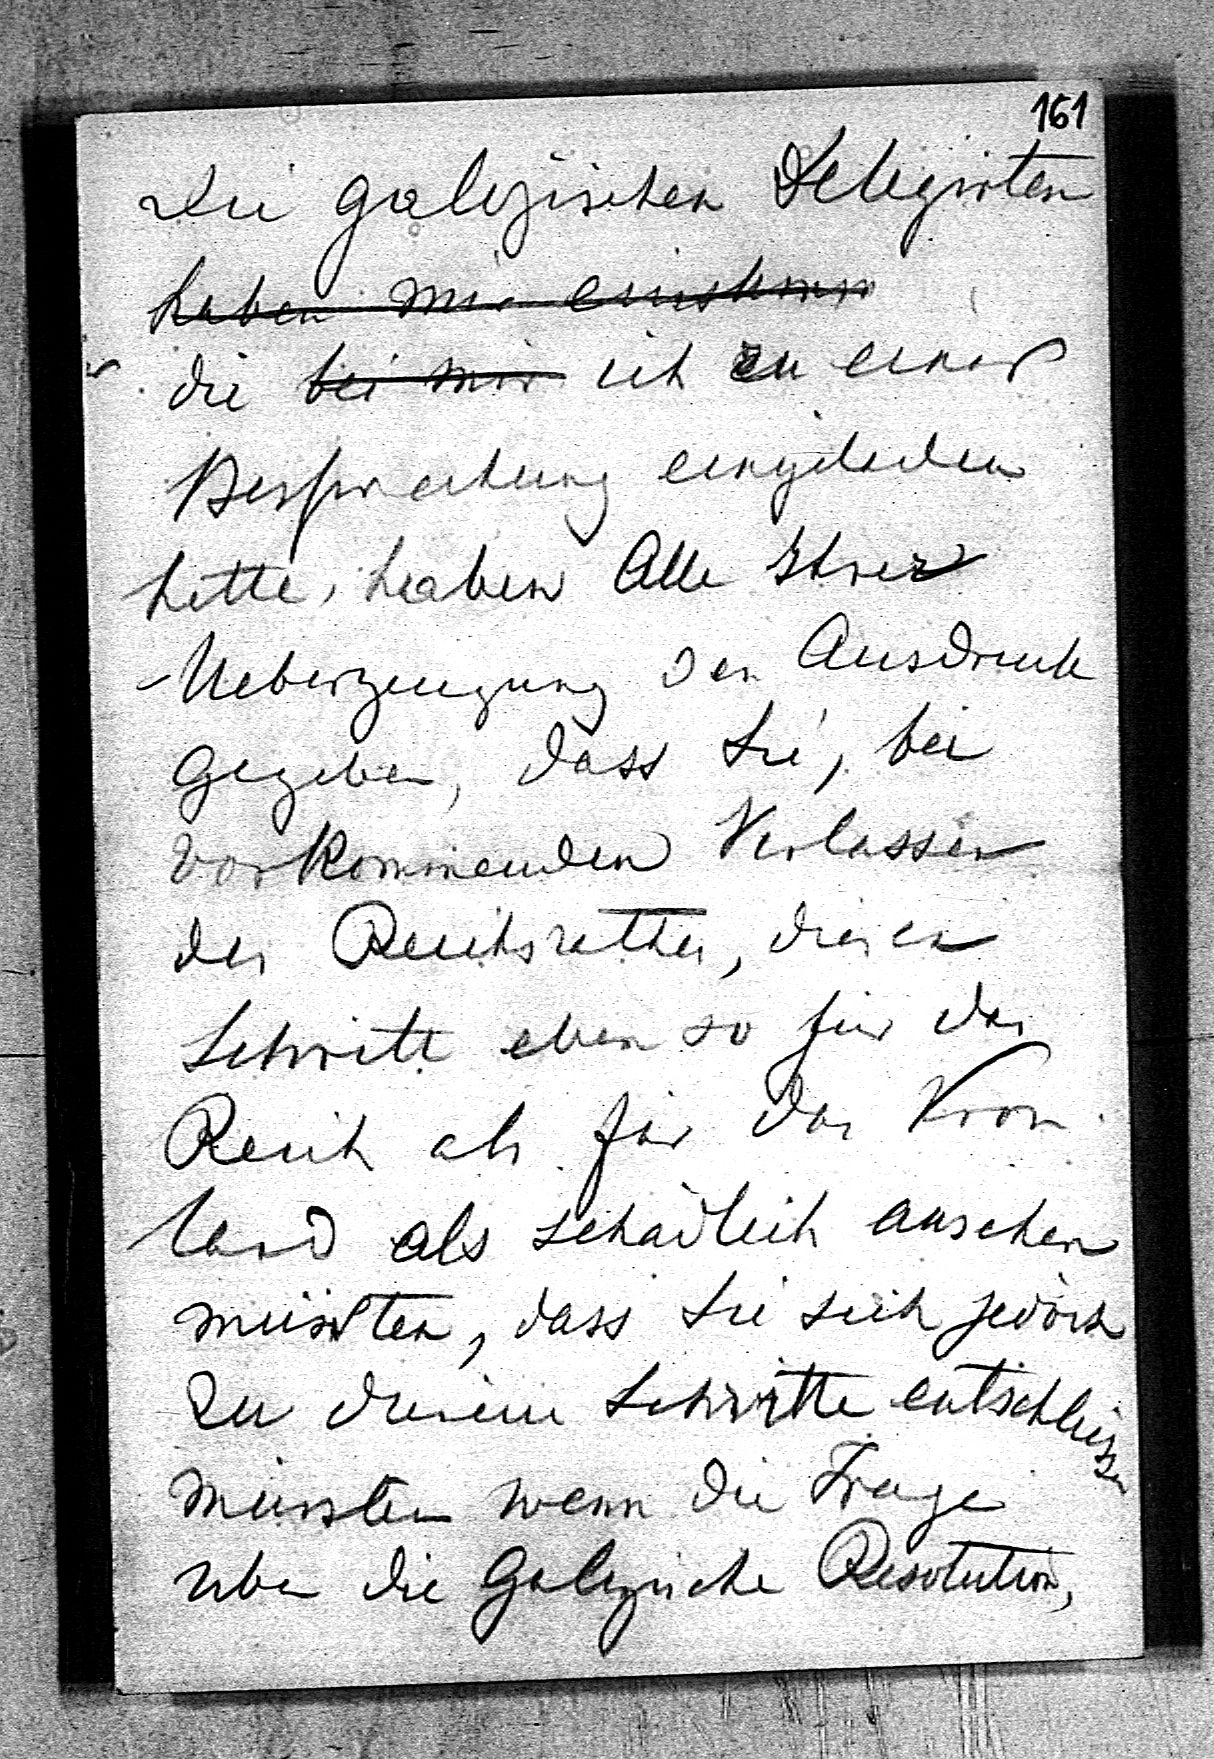 161
Die galizischen Delegirten
haben mir einstimm
die bei mir ich zu einer
Besprechung eingeladen
hatte, haben Alle Ihrer
Ueberzeugung den Ausdruck
gegeben, dass Sie, bei
vorkommenden Verlassen
des Reichsrathes, diesen
Schritt eben so für das
Reich als für das Kron
land als schädlich ansehen
müssten, dass Sie sich jedoch
zu diesem Schritte entschliessen
müssten wenn die Frage
über die Galizische Resolution,